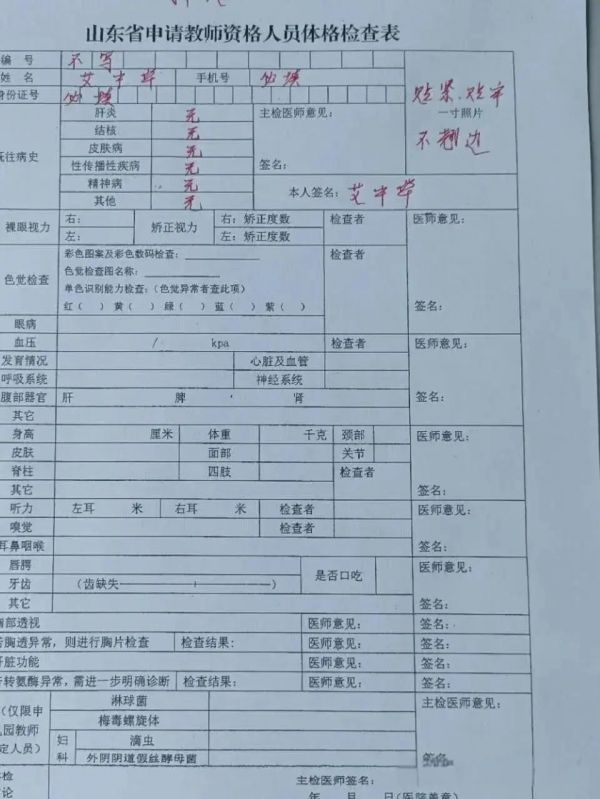 山东省申请教师资格人员体格检查表
编 号 不写
姓 名 艾中华 手机号 必填
身份证号 必填
贴紧、贴牢
一寸照片
不翘边
既往病史
肝炎 无 主检医师意见：
结核 无
皮肤病 无
性传播性疾病 无 签名：
精神病 无
其他 无 本人签名：艾中华
裸眼视力 右： 矫正视力 右：矫正度数 检查者 医师意见：
左： 左：矫正度数
色觉检查 彩色图案及彩色数码检查： 检查者
色觉检查图名称：
单色识别能力检查：（色觉异常者查此项）
红（ ） 黄（ ） 绿（ ） 蓝（ ） 紫（ ） 签名：
眼病
血压 / kpa 检查者 医师意见：
发育情况 心脏及血管
呼吸系统 神经系统
腹部器官 肝 脾 肾 签名：
其它
身高 厘米 体重 千克 颈部 医师意见：
皮肤 面部 关节
脊柱 四肢 检查者
其它 签名：
听力 左耳 米 右耳 米 检查者 医师意见：
嗅觉 检查者
耳鼻咽喉 签名：
唇腭 是否口吃 医师意见：
牙齿 （齿缺失——————+——————）
其它 签名：
胸部透视 医师意见： 签名：
若胸透异常，则进行胸片检查 检查结果： 医师意见： 签名：
肝脏功能 医师意见： 签名：
若转氨酶异常，需进一步明确诊断 检查结果： 医师意见： 签名：
（仅限申 淋球菌 主检医师意见：
儿园教师 梅毒螺旋体
定人员） 妇科 滴虫
外阴阴道假丝酵母菌 签名：
主检医师签名：
年 月 日（医院盖章）